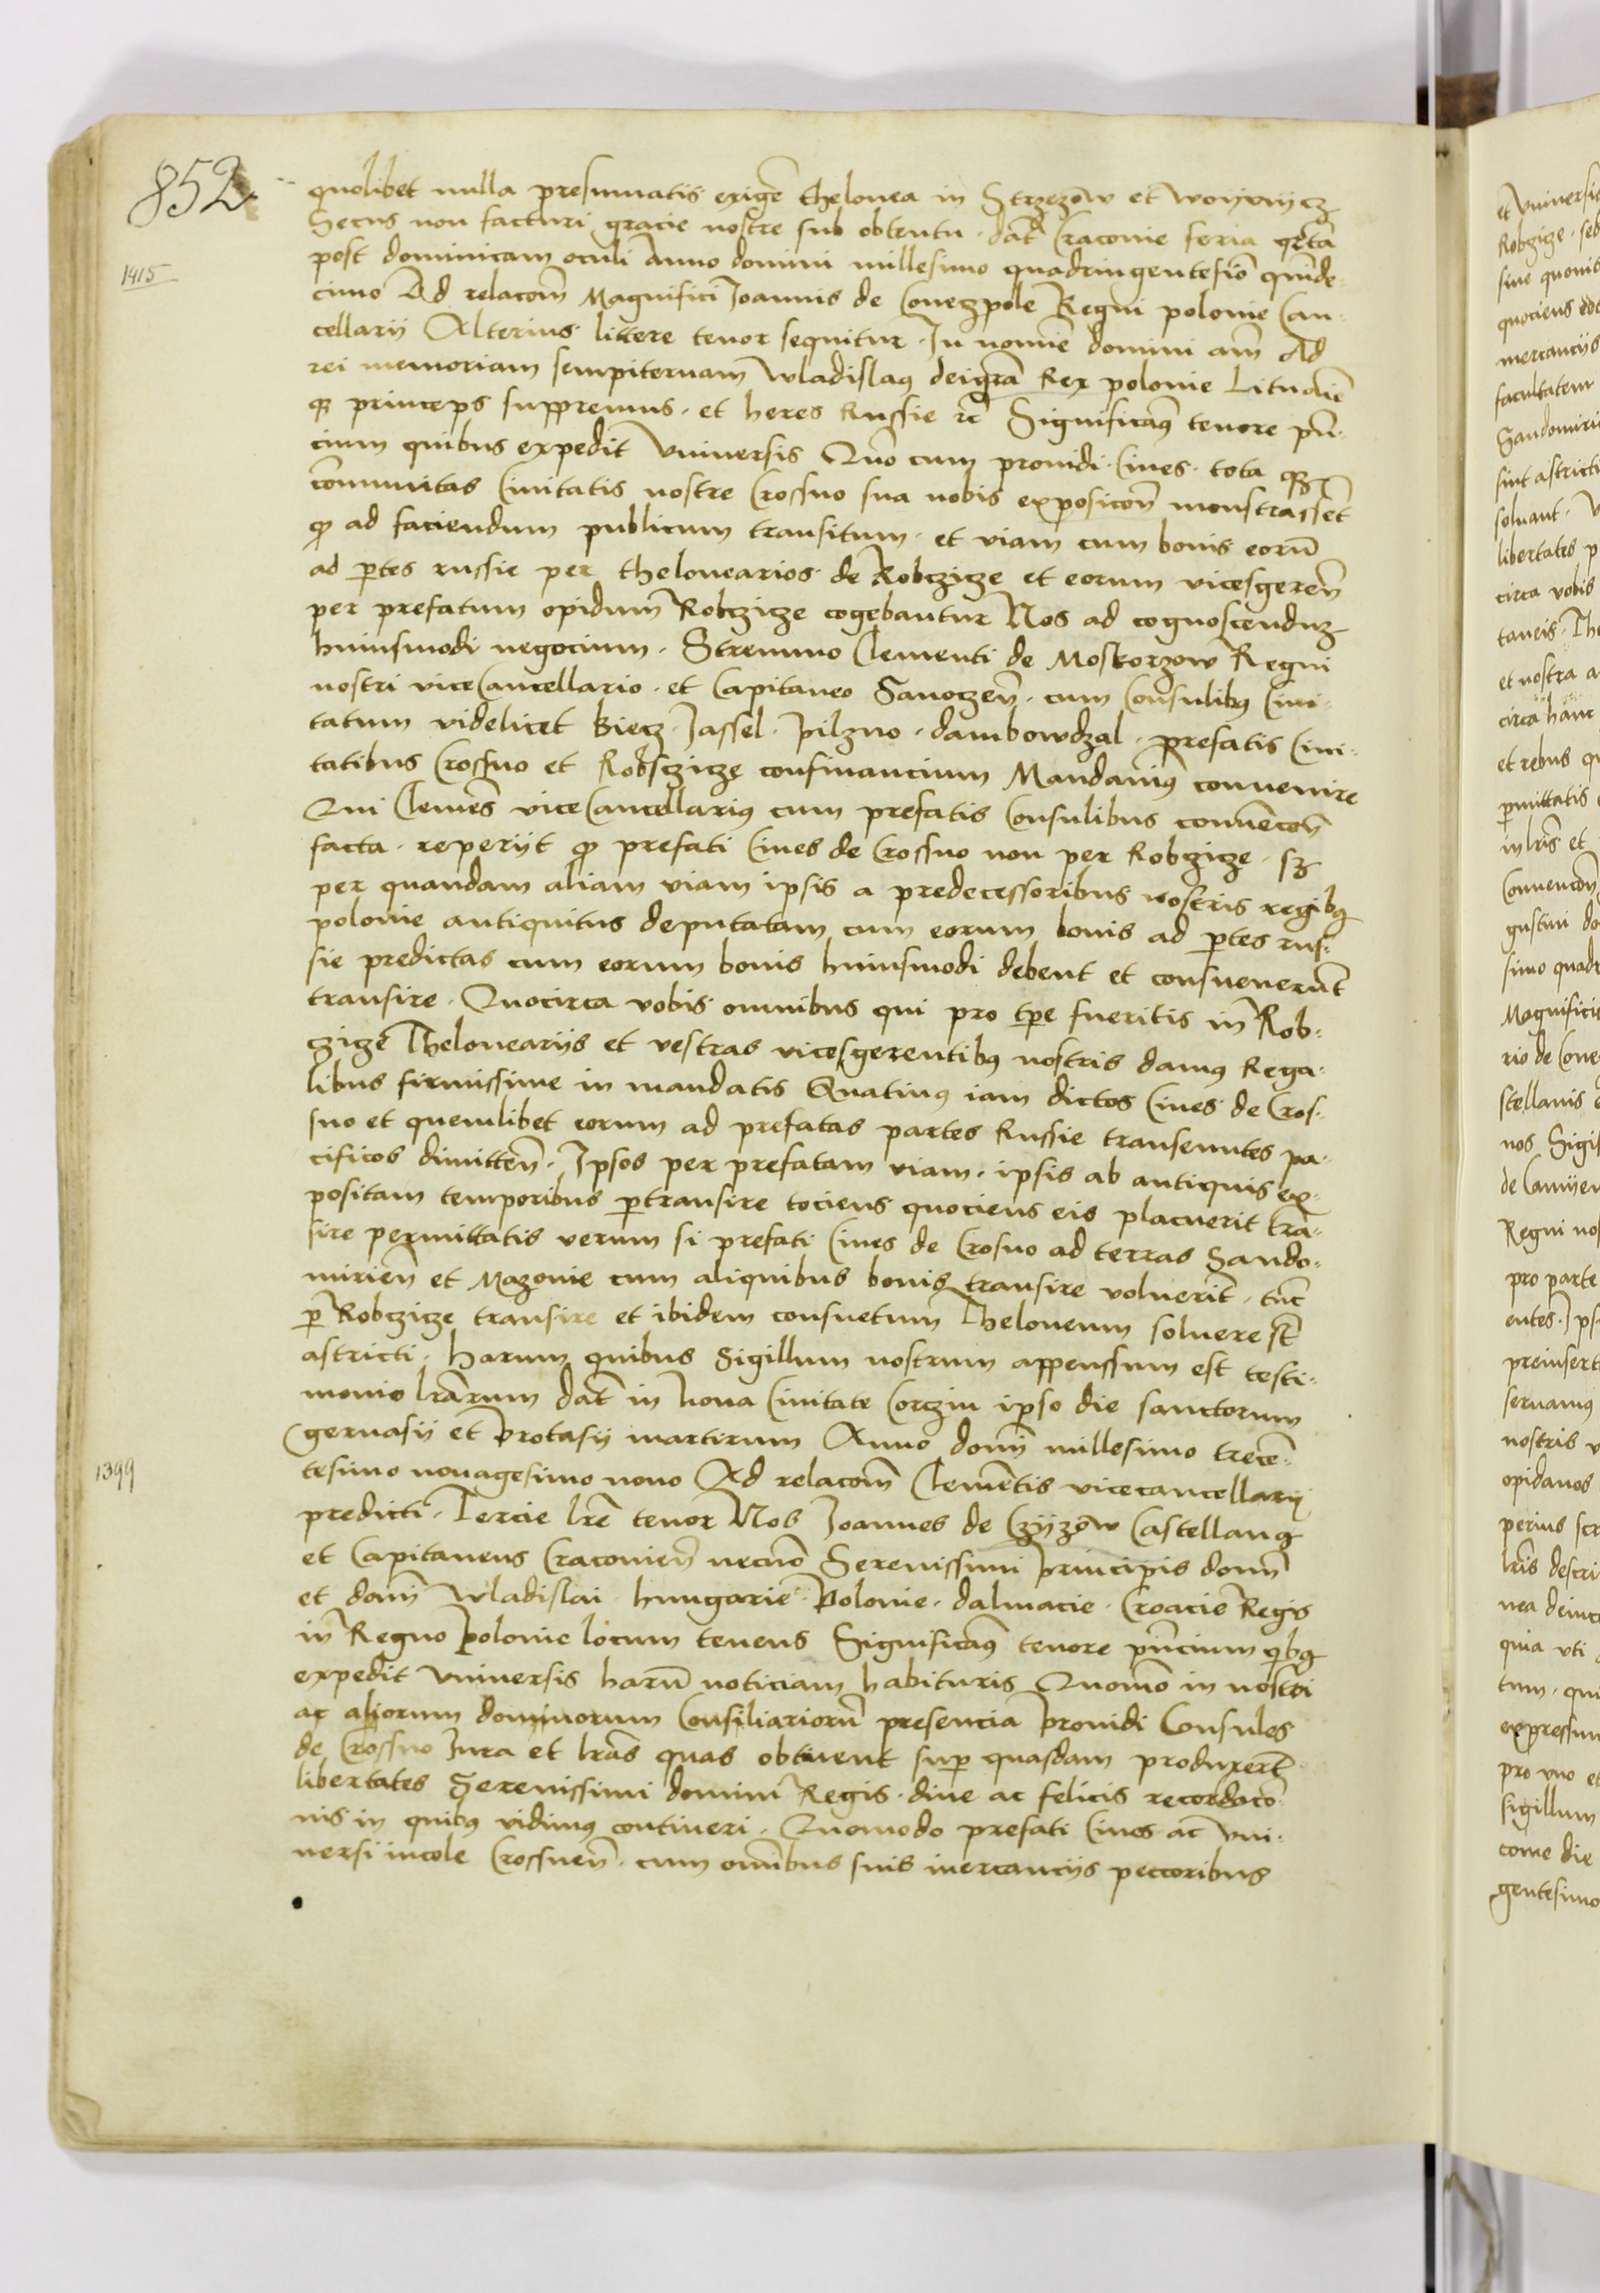 852
quolibet nulla presumatis exigē thelonea in Strzezow et Woyniycz
Secus non facturi gracie nostre sub obtentu. dat̄ Cracovie feria qrta
post dominicam oculi Anno domini millesimo quadringentesīo quīde-
1415
cimo Ad relacoēm Magnifici Joannis de Conezpole Regni polonie Can-
cellarij Alterius littere tenor sequitur. In nomīe domini amē Ad
rei memoriam sempiternam Wladislaus deigrā Rex polonie Lituanie
qz princeps suppremus. et heres Russie rc̄ Significamus tenore pn̄-
cium quibus expedit Universis Quo cum prouidi. Ciues. tota qz
cōmunitas Ciuitatis nostre Crossno sua nobis exposicōē monstrassēt
qd ad faciendum publicum transitum. et viam cum bonis eorū
ad ptes russie per thelonearios de Robczicze et eorum vicesgereñ
per prefatum opidum Robczicze cogebantur Nos ad cognoscenduz
huiusmodi negocium. Strennuo Clementi de Moskorzow Regni
nostri viceCancellario. et Capitaneo Sanoczeñ. cum Consulibus Ciui-
tatum videlicet Biecz. Jassel. Pilzno. dambowdzal. prefatis Ciui-
tatibus Crossno et Robsczicze confinancium Mandauimus conuenire
Qui Clemēs viceCancellarius cum prefatis Consulibus conuēcoē
facta. reperijt qd prefati Ciues de Crossno non per Robczicze. sz
per quandam aliam viam ipsis a predecessoribus nostris regibus
polonie antiquitus deputatam cum eorum bonis ad ptes rus-
sie predictas cum eorum bonis huiusmodi debent et consueuerūt
transire. Quocirca vobis omnibus qui pro tpe fueritis in Rob-
czicze Thelonearijs et vestras vicesgerentibus nostris damus Rega-
libus firmissime in mandatis Quatinus iam dictos Ciues de Cros-
sno et quemlibet eorum ad prefatas partes Russie transeuntes pa-
cificos dimitteñ. Ipsos per prefatam viam. ipsis ab antiquis ex-
positam temporibus ptransire tociens quociens eis placuerit trā-
sire permittatis verum si prefati Ciues de Crosno ad terras Sando-
mirieñ et Mazouie cum aliquibus bonis transire voluerīt. tūc
p Robczicze transire et ibidem consuetum Theloneum soluere st̄
astricti. Harum quibus Sigillum nostrum appenssum est testi-
monio lrārum dat̄ in Noua Ciuitate Corczin ipso die sanctorum
geruasij et Protasij martirum Anno domī millesimo trecē-
1399
tesimo nonagesimo nono Ad relacoēm Clemētis vicecancellarij
predicti. Tercie lrē tenor Nos Joannes de Czyzow Castellanus
et Capitaneus Cracouieñ necnō Serenissimi Principis domī
et domī Wladislai. hungarie. Polonie. dalmacie. Croacie Regis
in Regno Polonie locum tenens Significamus tenore pn̄cium qibus
expedit vniuersis harū noticiam habituris Quomō in nostri
ac aliorum dominorum Consiliariorū presencia Prouidi Consules
de Crossno Jura et lrās quas obtinent sup quasdam produxerūt
libertates Serenissimi domini Regis. diue ac felicis recordacō-
nis in quibus vidimus contineri. Quomodo prefati Ciues ac vni-
uersi incole Crossneñ. cum omībus suis mercancijs peccoribus
et Vniuersi
Robczicze. seb
siue quouis
quociens
mercancijs
facultatem
Sandomiri
sint astricti
soluant.
libertates p
circa vobis
taneis. The
et nostra a
circa hanc
et rebus qu
pmittatis
in lrīs et
Conuencōē
gustini do
simo quadr
Magnificis
rio de Cone
stellanis
nos Sigis
Regni nos
pro parte
entes. Ips
preinsert
seruamus
nostris v
opidanos
perius scr
lrīs descri
nea deinc
quia vti
tum. qui
expressum
pro vno et
Sigillum
couie die
gentesimo